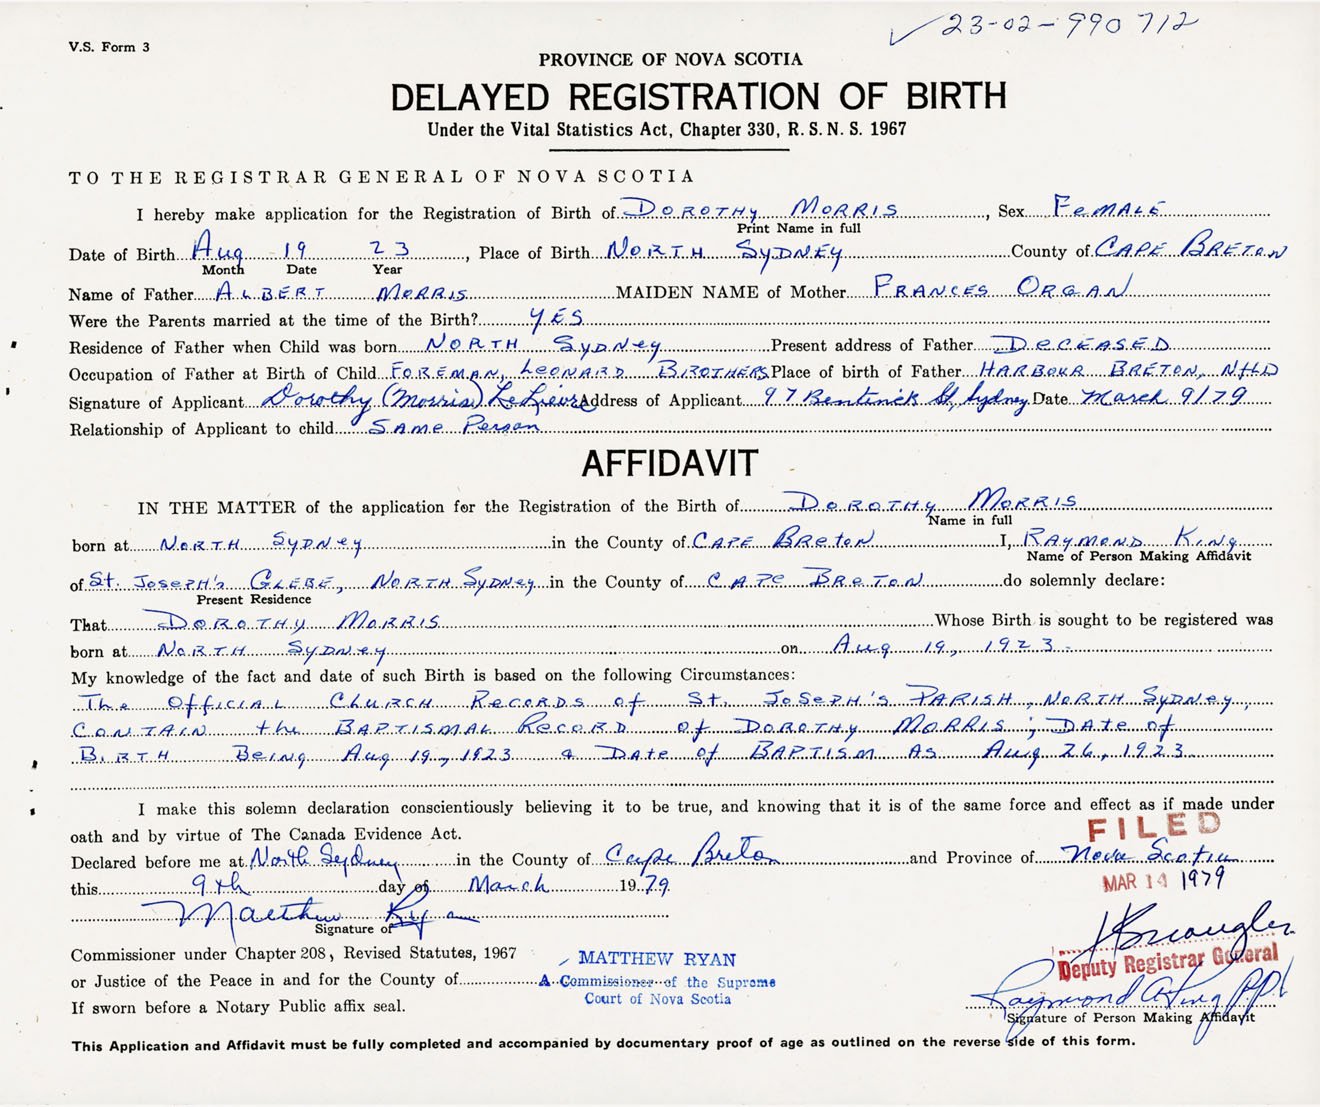 23-02-990 712
V.S. Form 3
PROVINCE OF NOVA SCOTIA
DELAYED REGISTRATION OF BIRTH
Under the Vital Statistics Act, Chapter 330, R. S. N. S. 1967
TO THE REGISTRAR GENERAL OF NOVA SCOTIA
I hereby make application for the Registration of Birth of DOROTHY MORRIS, Sex FeMALE
Print Name in full
Date of Birth Aug 19 23, Place of Birth NORTH SYDNEY County of CAPE BRETON
Month Date Year
Name of Father ALBERT MORRIS MAIDEN NAME of Mother FRANCES ORGAN
Were the Parents married at the time of the Birth? YES
Residence of Father when Child was born NORTH SYDNEY Present address of Father DECEASED
Occupation of Father at Birth of Child FOREMAN, LEONARD BROTHERS Place of birth of Father HARBOUR BRETON, NFLD
Signature of Applicant Dorothy (Morris) LeLievre Address of Applicant 97 Bentinck St, Sydney Date March 9/79
Relationship of Applicant to child SAME Person
AFFIDAVIT
IN THE MATTER of the application for the Registration of the Birth of DOROTHY MORRIS
Name in full
born at NORTH SYDNEY in the County of CAPE BRETON I, RAYMOND KING
Name of Person Making Affidavit
of St. JOSEPH's GLEBE, NORTH SYDNEY in the County of CAPE BRETON do solemnly declare:
Present Residence
That DOROTHY MORRIS Whose Birth is sought to be registered was
born at NORTH SYDNEY on Aug 19, 1923
My knowledge of the fact and date of such Birth is based on the following Circumstances:
The OFFICIAL CHURCH RECORDS of ST. JOSEPH'S PARISH, NORTH SYDNEY,
CONTAIN the BAPTISMAL RECORD of DOROTHY MORRIS; DATE of
BIRTH BEING Aug 19, 1923 & DATE of BAPTISM AS Aug 26, 1923
I make this solemn declaration conscientiously believing it to be true, and knowing that it is of the same force and effect as if made under
oath and by virtue of The Canada Evidence Act.
FILED
Declared before me at North Sydney in the County of Cape Breton and Province of Nova Scotia
this 9th day of March 1979
MAR 14 1979
Matthew Ryan
Signature of
Commissioner under Chapter 208, Revised Statutes, 1967
MATTHEW RYAN
Deputy Registrar General
or Justice of the Peace in and for the County of
A Commissioner of the Supreme
Court of Nova Scotia
Raymond A King P.P.
If sworn before a Notary Public affix seal.
Signature of Person Making Affidavit
This Application and Affidavit must be fully completed and accompanied by documentary proof of age as outlined on the reverse side of this form.